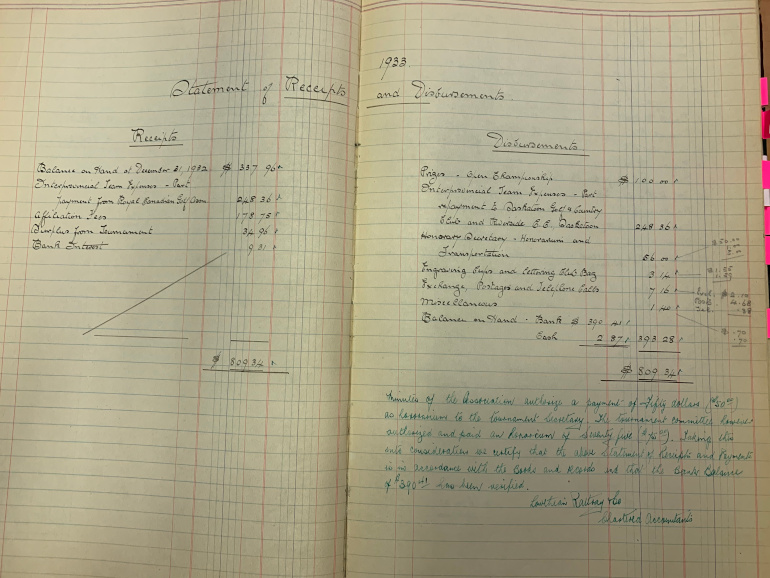 Statement of Receipts
Receipts
Balance on Hand at December 31, 1932 $ 337 96
Interprovincial Team Expenses - Part
Payment from Royal Canadian Golf Assn 248 36
Affiliation Fees 178 75
Surplus from Tournament 34 96
Bank Interest 9 31
$ 809 34
1933
and Disbursements
Disbursements
Prizes - Open Championship $ 100 00
Interprovincial Team Expenses - Part
repayment to Saskatoon Golf & Country
Club and Riverside C.C. Saskatoon 248 36
Honorary Secretary - Honorarium and
Transportation 56 00
Engraving Cups and lettering Club Bag 3 14
Exchange, Postages and Telephone Calls 7 16
Miscellaneous 1 40
Balance on Hand - Bank $ 390 41
Cash 2 87 393 28
$ 809 34
Minutes of the Association authorize a payment of Fifty dollars ($50 00)
as honorarium to the tournament Secretary. The tournament committee however
authorized and paid an Honorarium of Seventy five $75 00). Taking this
into consideration we certify that the above Statement of Receipts and Payments
is in accordance with the Books and records and that the Bank Balance
of $390 41 has been verified.
Rattray & Co
Chartered Accountants